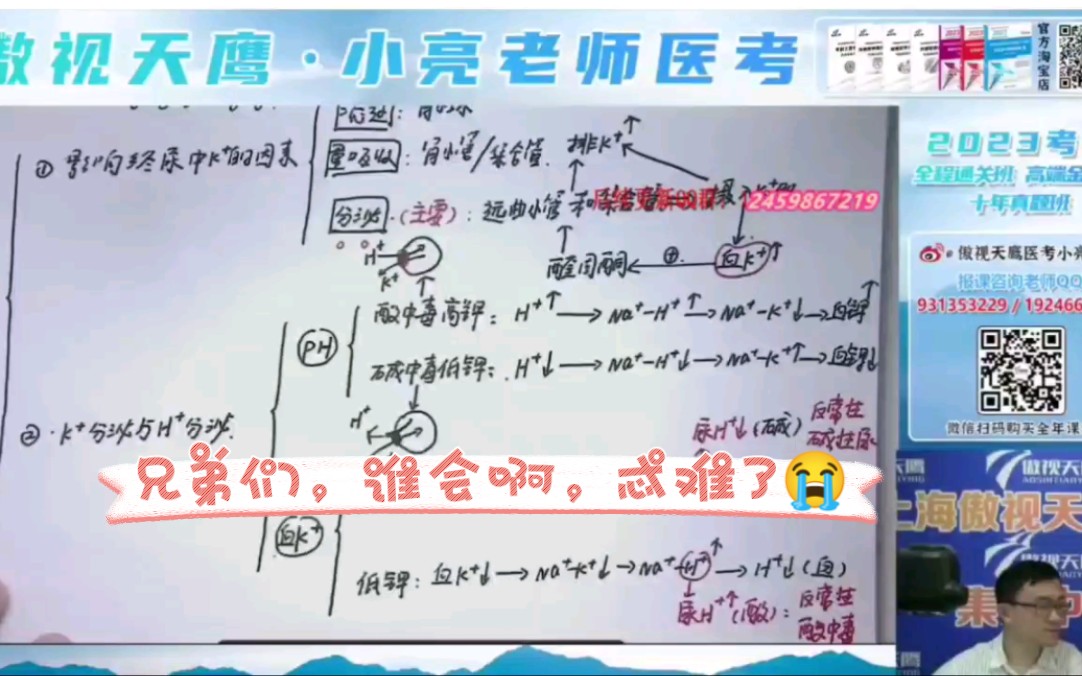 傲视天鹰·小亮老师医考
官方淘宝店
2023考
全程通关班 高端全
十年真题班
傲视天鹰医考小亮
报课咨询老师QQ
931353229 / 192466
微信扫码购买全年课
① 影响终尿中K⁺的因素
重吸收：肾小管/集合管.
排K⁺↑
2459867219
分泌.(主要)：远曲小管和
H⁺
K⁺
醛固酮
⊕
血K⁺↑
PH
酸中毒高钾：H⁺↑→Na⁺-H⁺↑→Na⁺-K⁺↓→血钾↑
碱中毒低钾：H⁺↓→Na⁺-H⁺↓→Na⁺-K⁺↑→血钾↓
H⁺
② ·K⁺分泌与H⁺分泌.
尿H⁺↓(碱)
反常性
碱性尿
兄弟们，谁会啊，忒难了😭
血K⁺
低钾：血K⁺↓→Na⁺-K⁺↓→Na⁺-H⁺↑→H⁺↓(血)
尿H⁺↑(酸)：反常性
酸中毒
傲视天
上海傲视天
傲视天